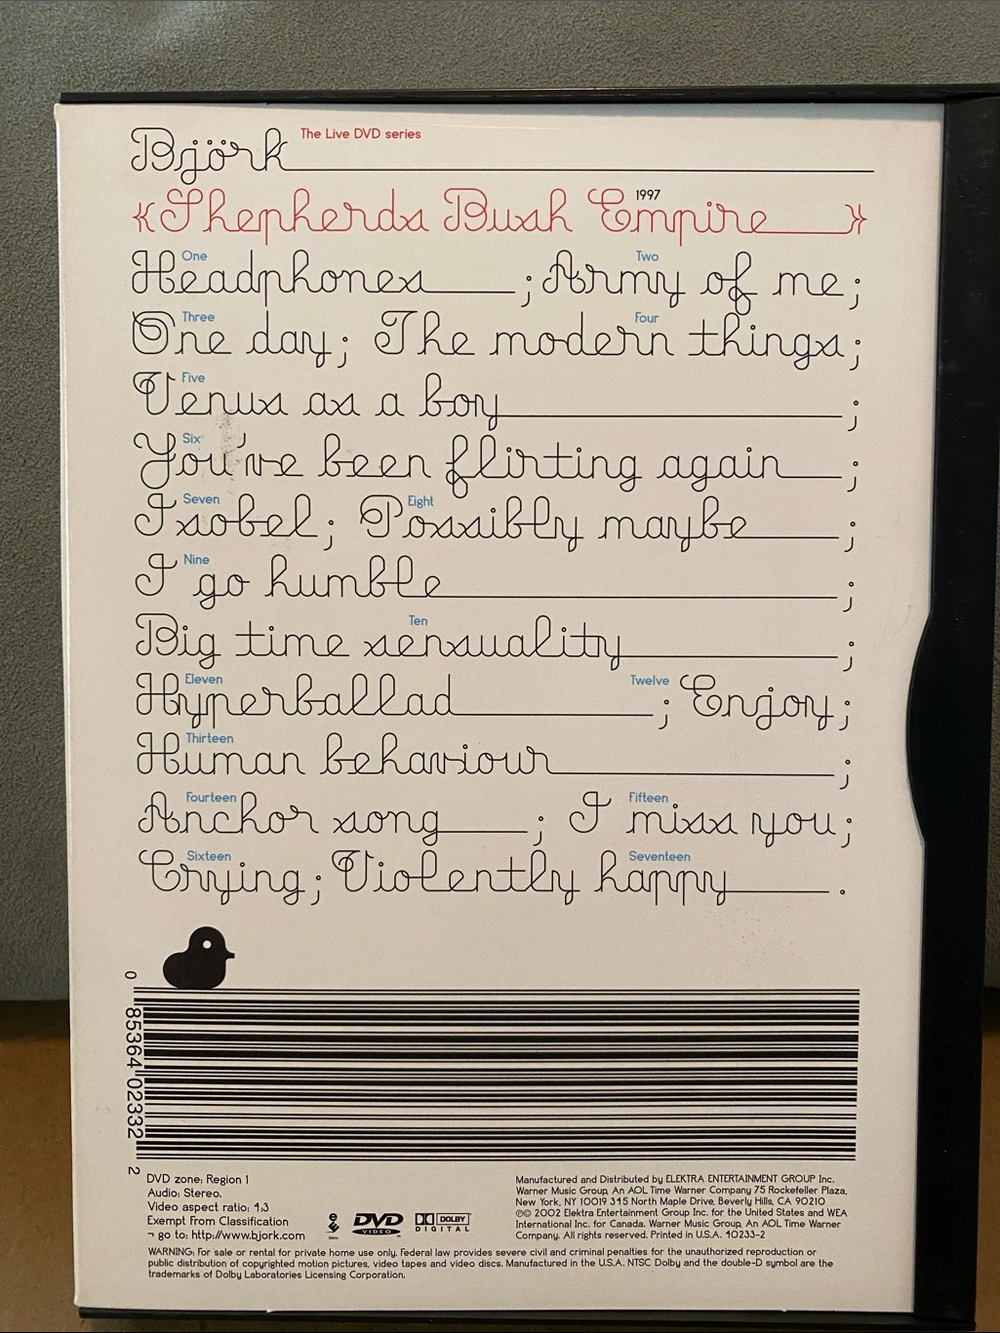 Björk The Live DVD series
《Shepherds Bush Empire 1997》
One Headphones; Two Army of me;
Three One day; Four The modern things;
Five Venus as a boy;
Six You've been flirting again;
Seven Isobel; Eight Possibly maybe;
Nine I go humble;
Ten Big time sensuality;
Eleven Hyperballad; Twelve Enjoy;
Thirteen Human behaviour;
Fourteen Anchor song; Fifteen I miss you;
Sixteen Crying; Seventeen Violently happy.
0 85364 02332 2
DVD zone: Region 1
Audio: Stereo.
Video aspect ratio: 4:3
Exempt From Classification
¬ go to: http://www.bjork.com
DVD VIDEO
DOLBY DIGITAL
Manufactured and Distributed by ELEKTRA ENTERTAINMENT GROUP Inc.
Warner Music Group, An AOL Time Warner Company 75 Rockefeller Plaza,
New York, NY 10019 345 North Maple Drive, Beverly Hills, CA 90210
℗© 2002 Elektra Entertainment Group Inc. for the United States and WEA
International Inc. for Canada. Warner Music Group, An AOL Time Warner
Company. All rights reserved. Printed in U.S.A. 40233-2
WARNING: For sale or rental for private home use only. Federal law provides severe civil and criminal penalties for the unauthorized reproduction or
public distribution of copyrighted motion pictures, video tapes and video discs. Manufactured in the U.S.A. NTSC Dolby and the double-D symbol are the
trademarks of Dolby Laboratories Licensing Corporation.